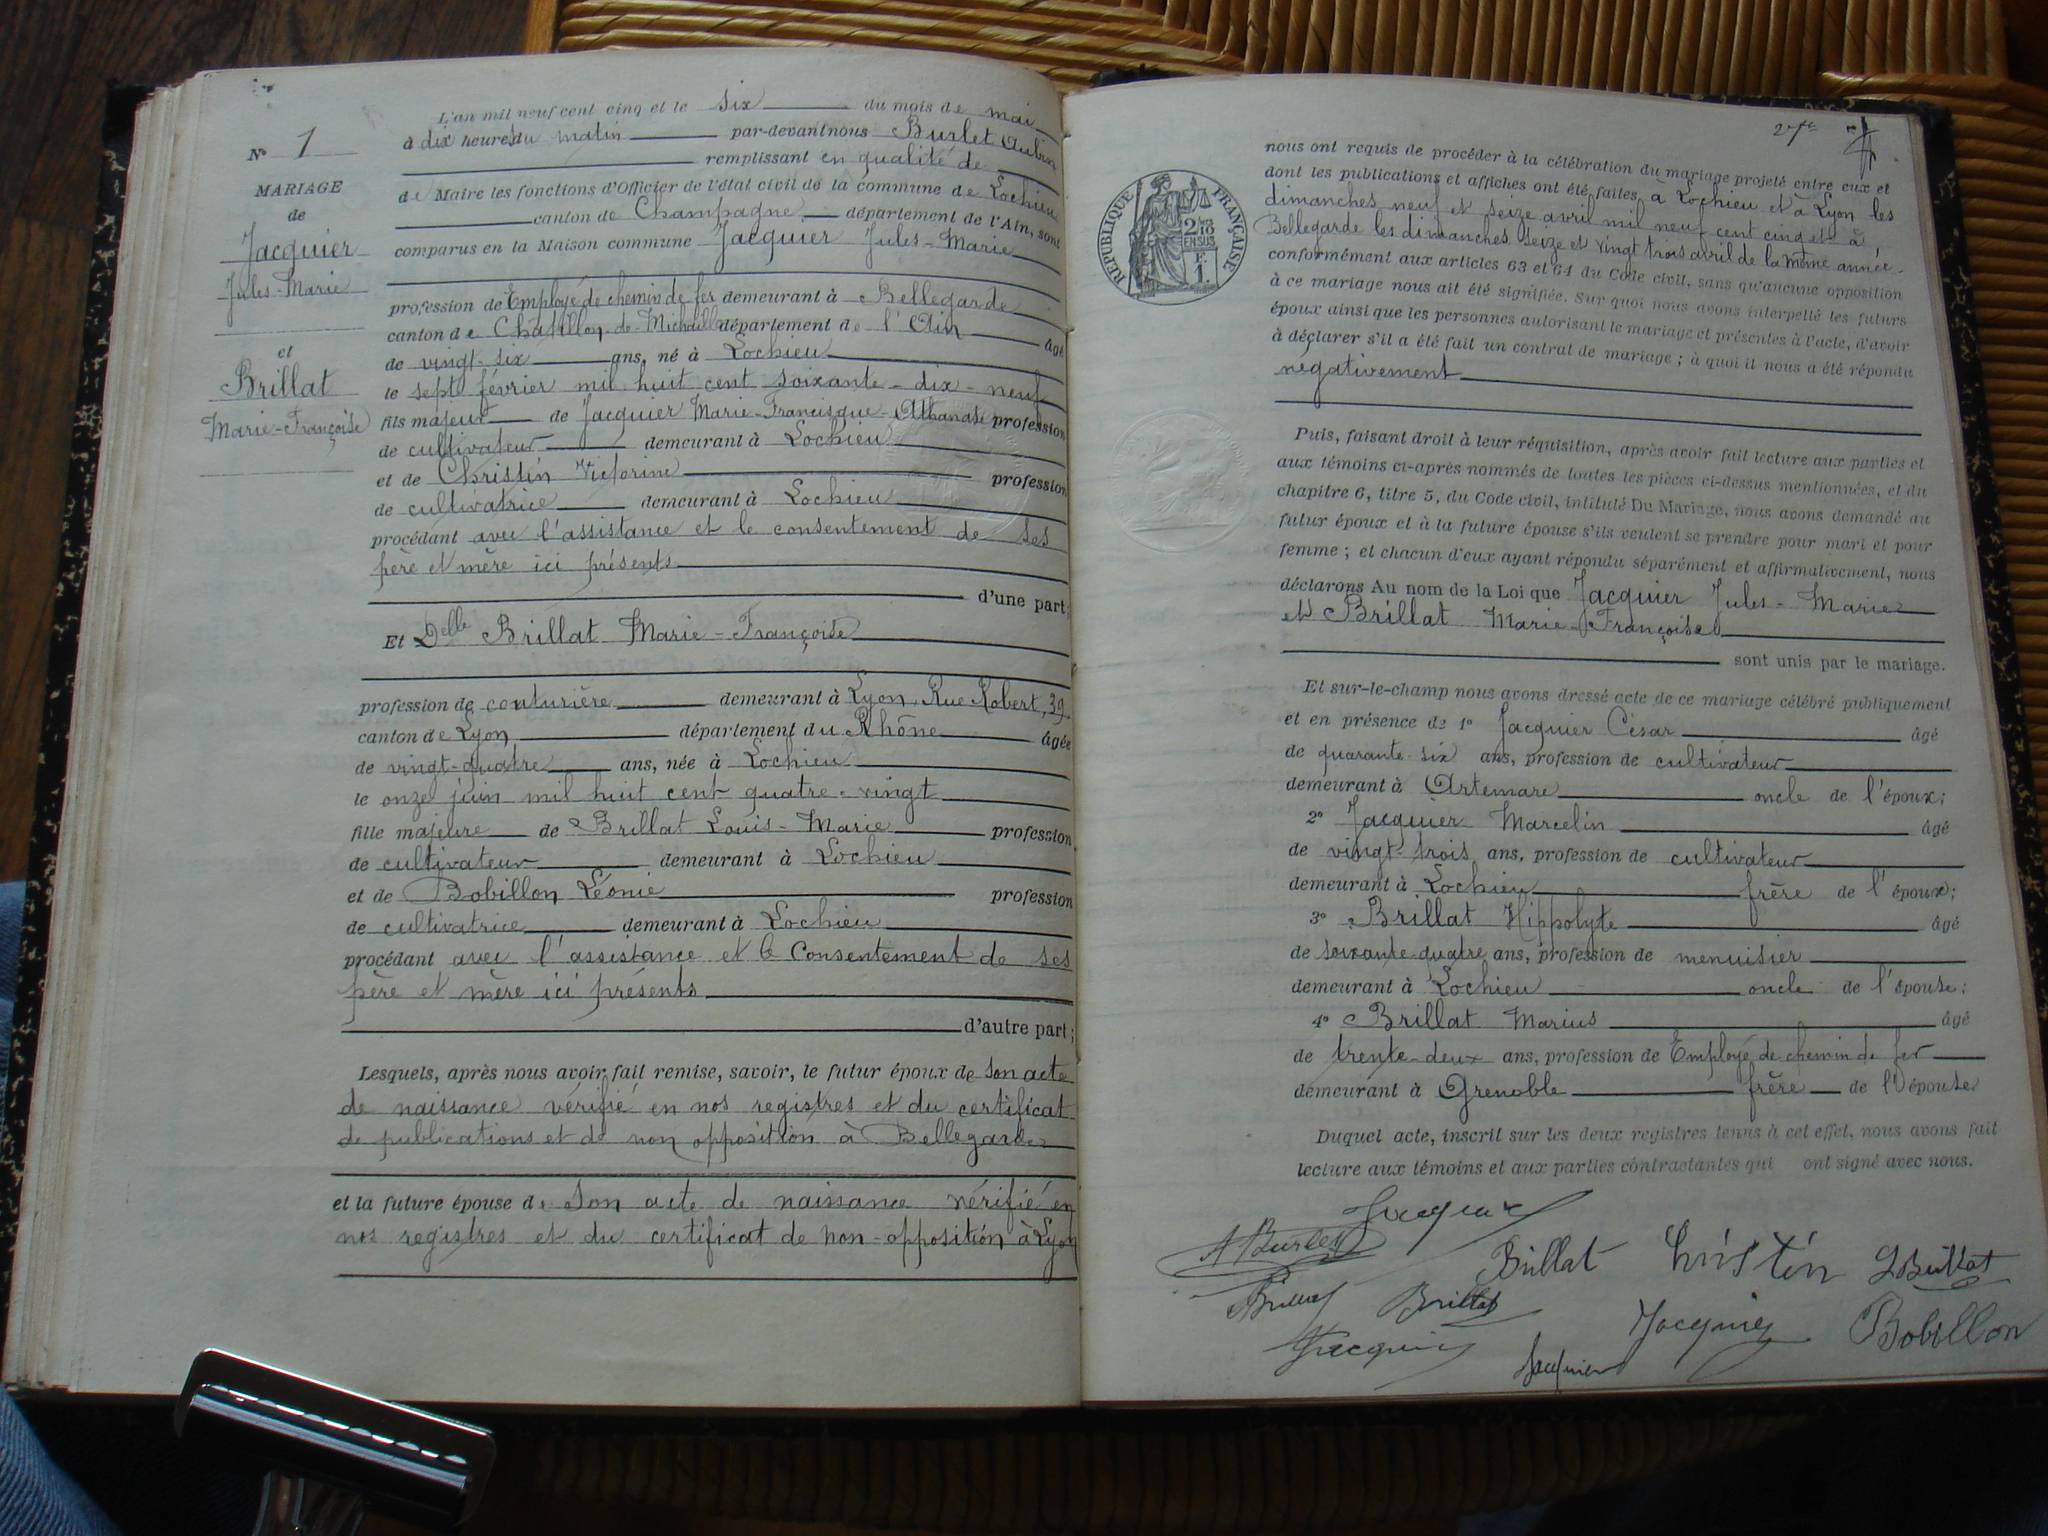 N° 1
MARIAGE
de
Jacquier
Jules-Marie
et
Brillat
Marie-Françoise
L'an mil neuf cent cinq et le six du mois de mai
à dix heures du matin par-devant nous Burlet Aubin
remplissant en qualité de
de Maire les fonctions d'Officier de l'état civil de la commune de Lochieu
canton de Champagne, département de l'Ain, sont
comparus en la Maison commune Jacquier Jules-Marie
profession de Employé de chemin de fer demeurant à Bellegarde
canton de Châtillon-de-Michaille département de l'Ain âgé
de vingt-six ans, né à Lochieu
le sept février mil huit cent soixante-dix-neuf
fils majeur de Jacquier Marie-Francisque-Athanase profession
de cultivateur demeurant à Lochieu
et de Christin Victorine profession
de cultivatrice demeurant à Lochieu
procédant avec l'assistance et le consentement de ses
père et mère ici présents
d'une part;
Et Delle Brillat Marie-Françoise
profession de couturière demeurant à Lyon, Rue Robert, 39
canton de Lyon département du Rhône âgée
de vingt-quatre ans, née à Lochieu
le onze juin mil huit cent quatre-vingt
fille majeure de Brillat Louis-Marie profession
de cultivateur demeurant à Lochieu
et de Bobillon Léonie profession
de cultivatrice demeurant à Lochieu
procédant avec l'assistance et le Consentement de ses
père et mère ici présents
d'autre part;
Lesquels, après nous avoir fait remise, savoir, le futur époux de son acte
de naissance vérifié en nos registres et du certificat
de publications et de non opposition à Bellegarde
et la future épouse de son acte de naissance vérifié en
nos registres et du certificat de non-opposition à Lyon
RÉPUBLIQUE FRANÇAISE
2/10 EN SUS
F. 1
nous ont requis de procéder à la célébration du mariage projeté entre eux et
dont les publications et affiches ont été faites, à Lochieu et à Lyon les
dimanches neuf et seize avril mil neuf cent cinq et à
Bellegarde les dimanches seize et vingt trois avril de la même année.
conformément aux articles 63 et 64 du Code civil, sans qu'aucune opposition
à ce mariage nous ait été signifiée. Sur quoi nous avons interpellé les futurs
époux ainsi que les personnes autorisant le mariage et présentes à l'acte, d'avoir
à déclarer s'il a été fait un contrat de mariage ; à quoi il nous a été répondu
négativement
Puis, faisant droit à leur réquisition, après avoir fait lecture aux parties et
aux témoins ci-après nommés de toutes les pièces ci-dessus mentionnées, et du
chapitre 6, titre 5, du Code civil, intitulé Du Mariage, nous avons demandé au
futur époux et à la future épouse s'ils veulent se prendre pour mari et pour
femme ; et chacun d'eux ayant répondu séparément et affirmativement, nous
déclarons Au nom de la Loi que Jacquier Jules-Marie
et Brillat Marie-Françoise
sont unis par le mariage.
Et sur-le-champ nous avons dressé acte de ce mariage célébré publiquement
et en présence de 1° Jacquier César âgé
de quarante-six ans, profession de cultivateur
demeurant à Artemare oncle de l'époux;
2° Jacquier Marcelin âgé
de vingt-trois ans, profession de cultivateur
demeurant à Lochieu frère de l'époux;
3° Brillat Hippolyte âgé
de soixante-quatre ans, profession de menuisier
demeurant à Lochieu oncle de l'épouse;
4° Brillat Marius âgé
de trente-deux ans, profession de Employé de chemin de fer
demeurant à Grenoble frère de l'épouse
Duquel acte, inscrit sur les deux registres tenus à cet effet, nous avons fait
lecture aux témoins et aux parties contractantes qui ont signé avec nous.
Jacquier
A Burlet Brillat Christin L Brillat
Brillat Brillat Jacquier Bobillon
Jacquier Jacquier